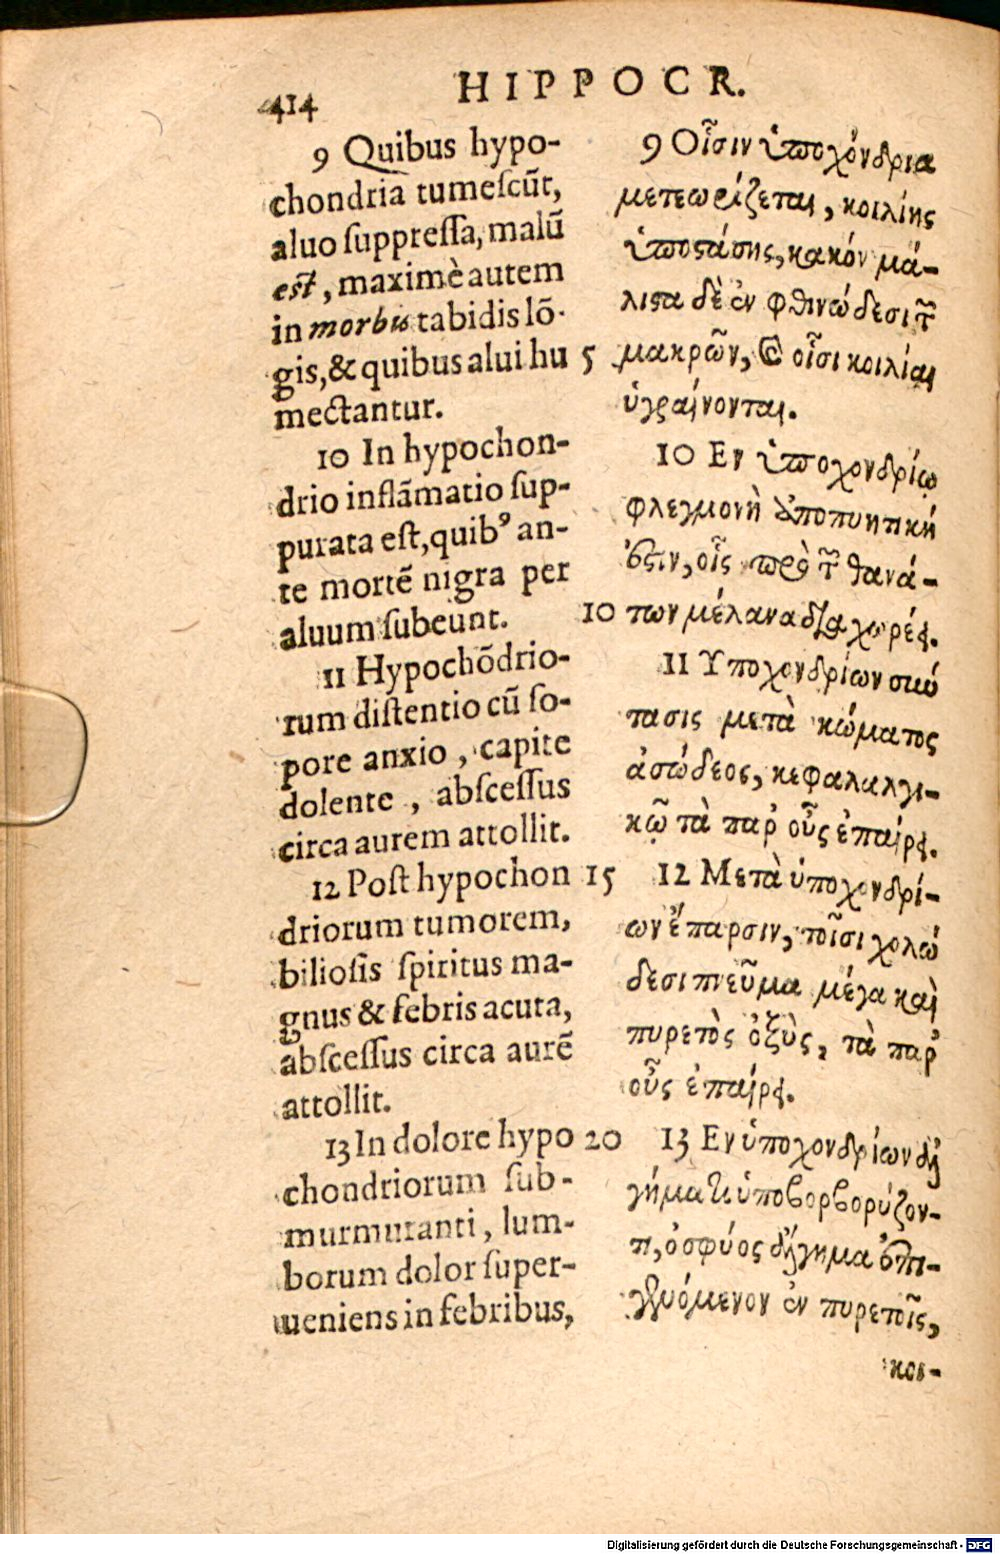 414
HIPPOCR.
9 Quibus hypo-
chondria tumeſcūt,
aluo ſuppreſſa, malū
eſt, maximè autem
in morbis tabidis lō-
gis, & quibus alui hu
mectantur.
10 In hypochon-
drio inflāmatio ſup-
purata eſt, quibꝰ an-
te mortē nigra per
aluum ſubeunt.
11 Hypochōdrio-
rum diſtentio cū ſo-
pore anxio, capite
dolente, abſceſſus
circa aurem attollit.
12 Poſt hypochon
driorum tumorem,
bilioſis ſpiritus ma-
gnus & febris acuta,
abſceſſus circa aurē
attollit.
13 In dolore hypo
chondriorum ſub-
murmuranti, lum-
borum dolor ſuper-
ueniens in febribus,
5
10
15
20
9 Οἷσιν ὑποχόνδρια
μετεωρίζεται, κοιλίης
ὑποϛάσης, κακόν μά-
λιϛα δὲ ἐν φθινώδεσι τῶν
μακρῶν, καὶ οἷσι κοιλίαι
ὑγραίνονται.
10 Εν ὑποχονδρίῳ
φλεγμονὴ ἀποπυητική
ἐϛιν, οἷς πρὸ τῶν θανά-
των μέλανα διαχωρέει.
11 Υποχονδρίων σύν
τασις μετὰ κώματος
ἀσώδεος, κεφαλαλγι-
κῷ τὰ παρ' οὖς ἐπαίρει.
12 Μετὰ ὑποχονδρί-
ων ἔπαρσιν, τοῖσι χολώ
δεσι πνεῦμα μέγα καὶ
πυρετὸς ὀξὺς, τὰ παρ'
οὖς ἐπαίρει.
13 Εν ὑποχονδρίων δή
γματι ὑποβορβορύζον-
τι, ὀσφύος
γενόμενον ἐν πυρετοῖς,
κοι-
Digitalisierung gefördert durch die Deutsche Forschungsgemeinschaft - DFG